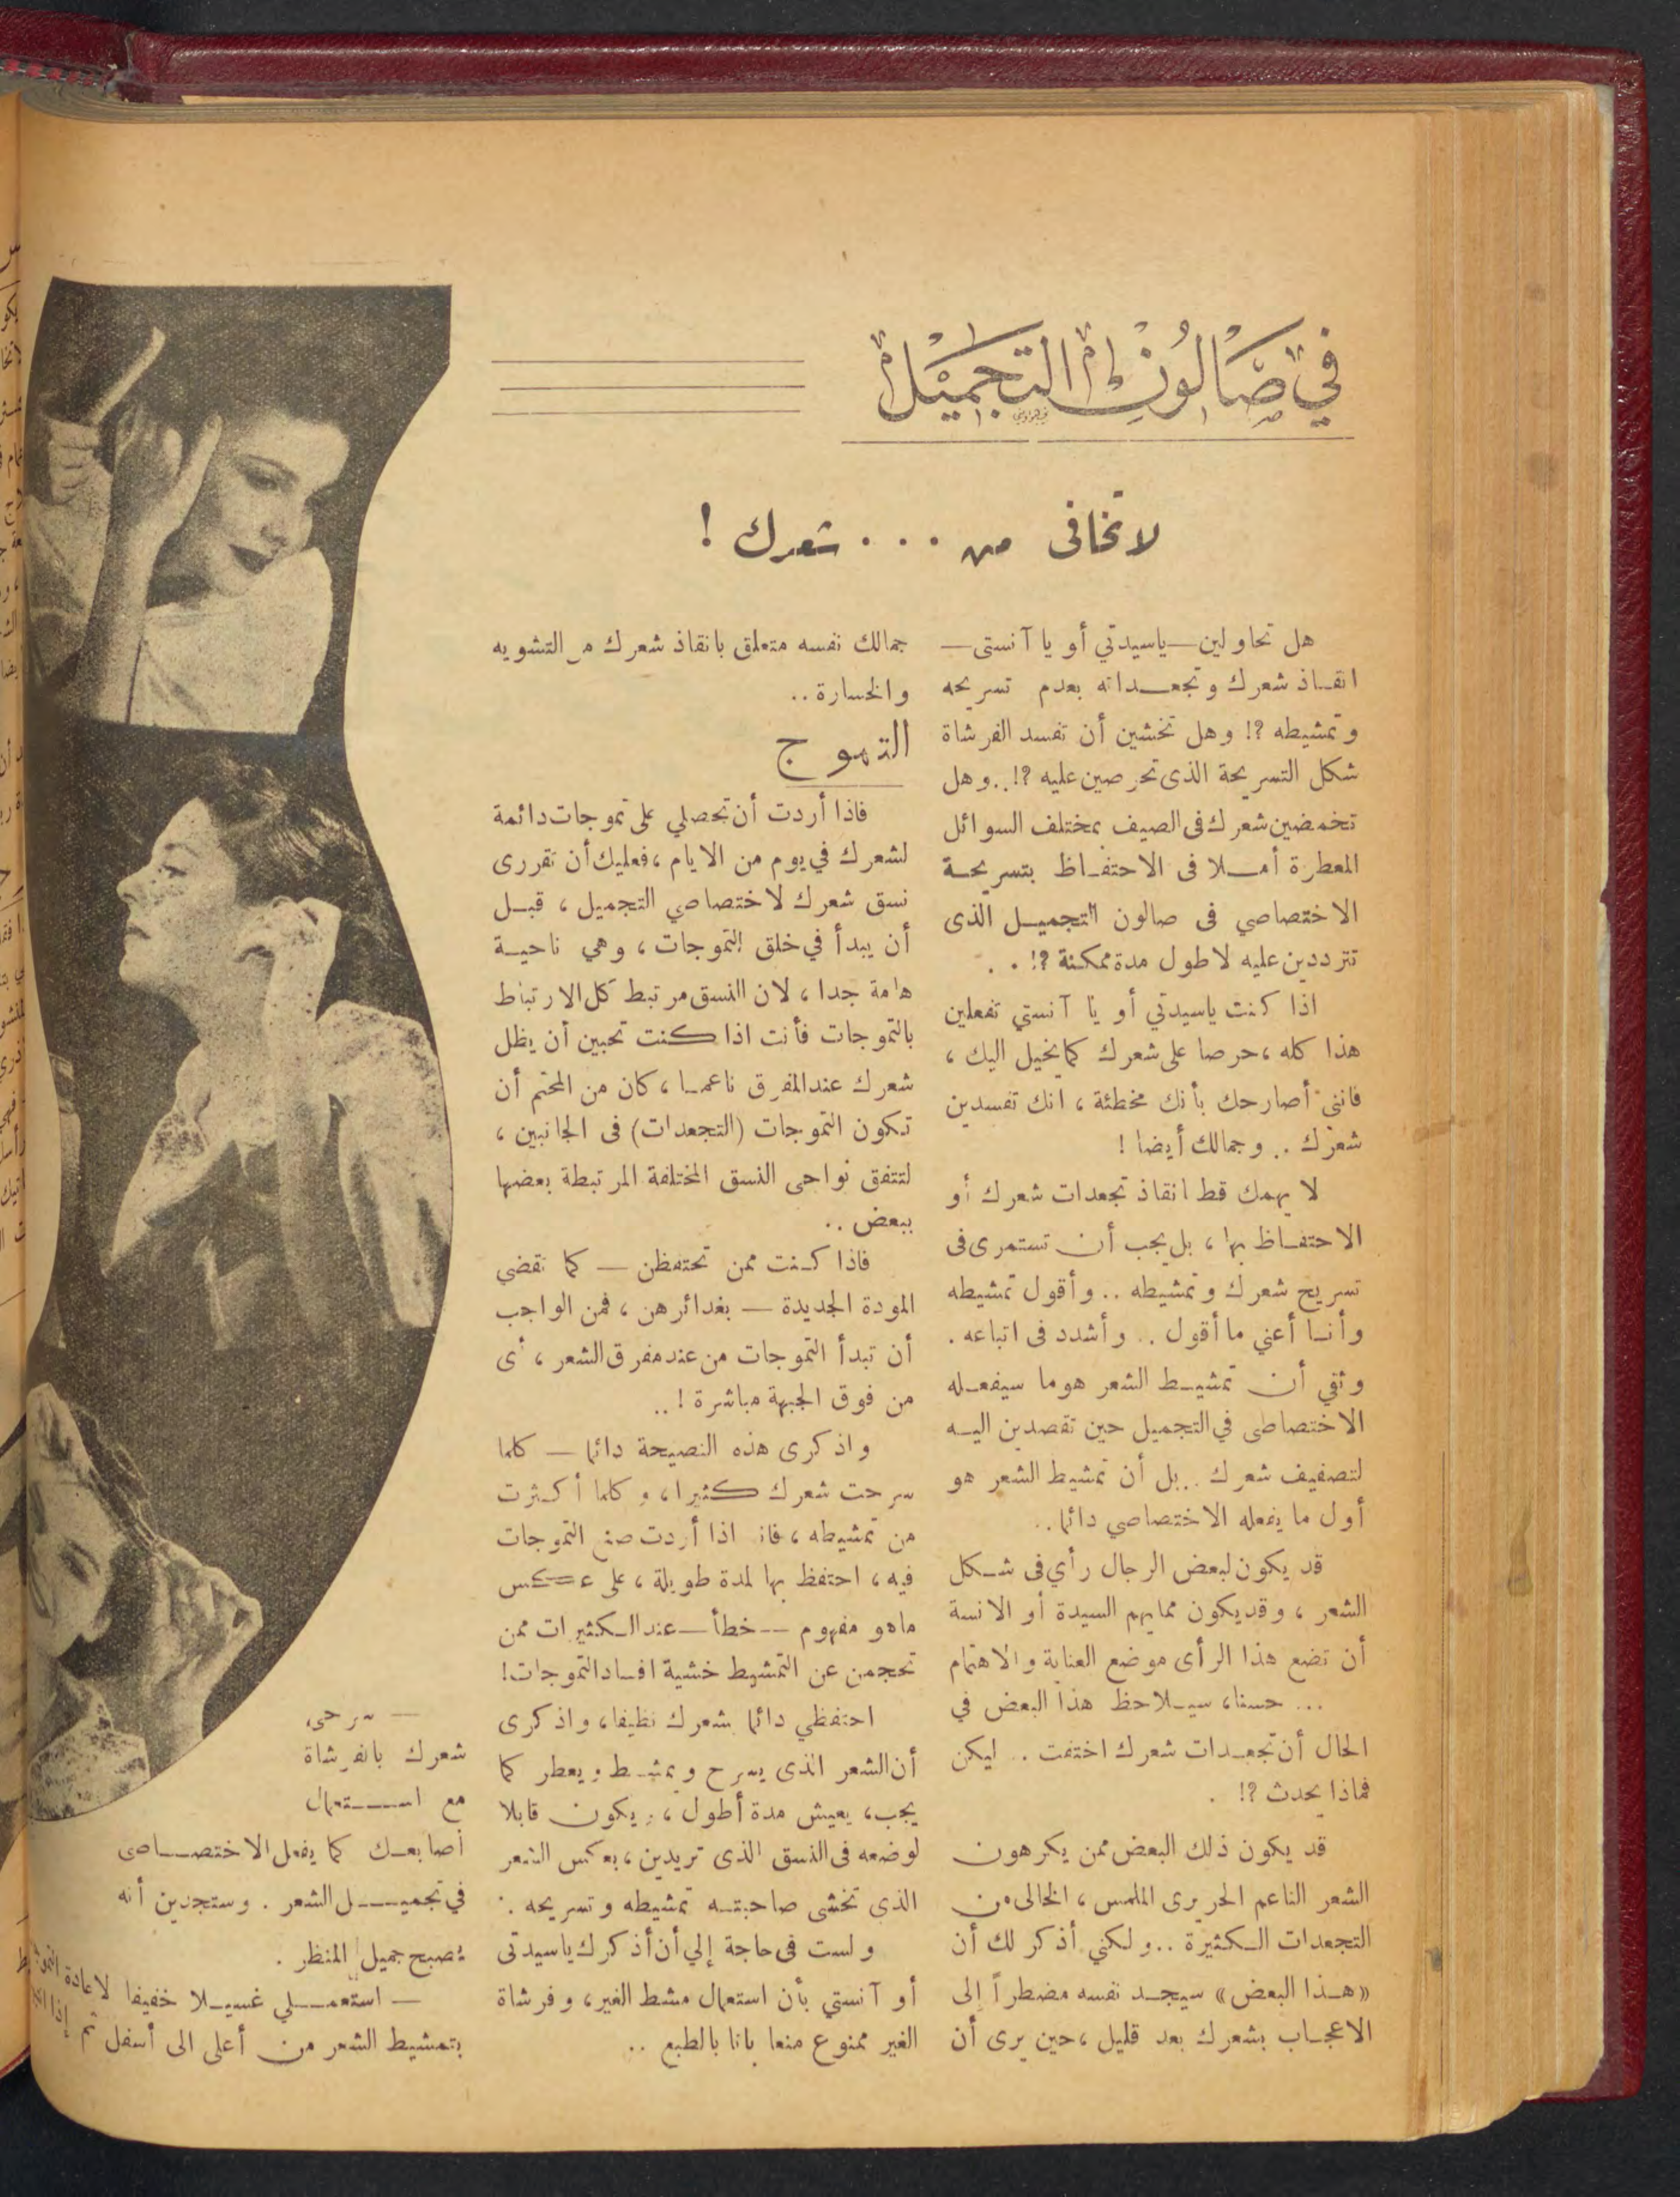 في صالون التجميل
لا تخافى من ... شعرك !
هل تحاولين — ياسيدتي أو يا آنستى —
انقاذ شعرك وتجعداته بعدم تسريحه
وتمشيطه ?! وهل تخشين أن تفسد الفرشاة
شكل التسريحة الذى تحرصين عليه ?!.. وهل
تخمضين شعرك فى الصيف بمختلف السوائل
المعطرة أملا فى الاحتفاظ بتسريحة
الاختصاصي فى صالون التجميل الذى
تترددين عليه لاطول مدة ممكنة ?! . .
اذا كنت ياسيدتي أو يا آنستي تفعلين
هذا كله ، حرصا على شعرك كما يخيل اليك ،
فانني أصارحك بأنك مخطئة ، انك تفسدين
شعرك .. وجمالك أيضا !
لا يهمك قط انقاذ تجعدات شعرك أو
الاحتفاظ بها ، بل يجب أن تستمرى فى
تسريح شعرك وتمشيطه .. وأقول تمشيطه
وأنا أعني ما أقول .. وأشدد فى اتباعه .
وثقي أن تمشيط الشعر هو ما سيفعله
الاختصاصى في التجميل حين تقصدين اليه
لتصفيف شعرك .. بل أن تمشيط الشعر هو
أول ما يفعله الاختصاصي دائما ..
قد يكون لبعض الرجال رأي فى شكل
الشعر ، وقد يكون مما يهم السيدة أو الانسة
أن تضع هذا الرأى موضع العناية والاهتمام
... حسنا ، سيلاحظ هذا البعض في
الحال أن تجعدات شعرك اختفت .. ليكن
فماذا يحدث ?! .
قد يكون ذلك البعض ممن يكرهون
الشعر الناعم الحريرى الملمس ، الخالى من
التجعدات الكثيرة .. ولكني أذكر لك أن
«هذا البعض» سيجد نفسه مضطراً إلى
الاعجاب بشعرك بعد قليل ، حين يرى أن
جمالك نفسه متعلق بانقاذ شعرك من التشويه
والخسارة ..
التموج
فاذا أردت أن تحصلي على تموجات دائمة
لشعرك في يوم من الايام ، فعليك أن تقررى
نسق شعرك لاختصاصي التجميل ، قبل
أن يبدأ في خلق التموجات ، وهي ناحية
هامة جدا ، لان النسق مرتبط كل الارتباط
بالتموجات فأنت اذا كنت تحبين أن يظل
شعرك عند المفرق ناعما ، كان من المحتم أن
تكون التموجات (التجعدات) فى الجانبين ،
لتتفق نواحى النسق المختلفة المرتبطة بعضها
ببعض ..
فاذا كنت ممن تحتفظن — كما تقضي
المودة الجديدة — بغدائرهن ، فمن الواجب
أن تبدأ التموجات من عند مفرق الشعر ، أى
من فوق الجبهة مباشرة ! ..
واذكرى هذه النصيحة دائما — كلما
سرحت شعرك كثيرا ، وكلما أكثرت
من تمشيطه ، فانه اذا أردت صنع التموجات
فيه ، احتفظ بها لمدة طويلة ، على عكس
ماهو مفهوم — خطأ — عند الكثيرات ممن
تحجمن عن التمشيط خشية افساد التموجات !
احتفظي دائما بشعرك نظيفا ، واذكرى
أن الشعر الذى يسرح ويمشط ويعطر كما
يجب ، يعيش مدة أطول ، ويكون قابلا
لوضعه فى النسق الذى تريدين ، بعكس الشعر
الذى تخشى صاحبته تمشيطه وتسريحه .
ولست فى حاجة إلي أن أذكرك ياسيدتى
أو آنستي بأن استعمال مشط الغير ، وفرشاة
الغير ممنوع منعا باتا بالطبع ..
— سرحى
شعرك بالفرشاة
مع استعمال
أصابعك كما يفعل الاختصاصى
في تجميل الشعر . وستجدين أنه
يصبح جميل المنظر .
— استعملي غسيلا خفيفا لاعادة
بتمشيط الشعر من أعلى الى أسفل ثم إذا